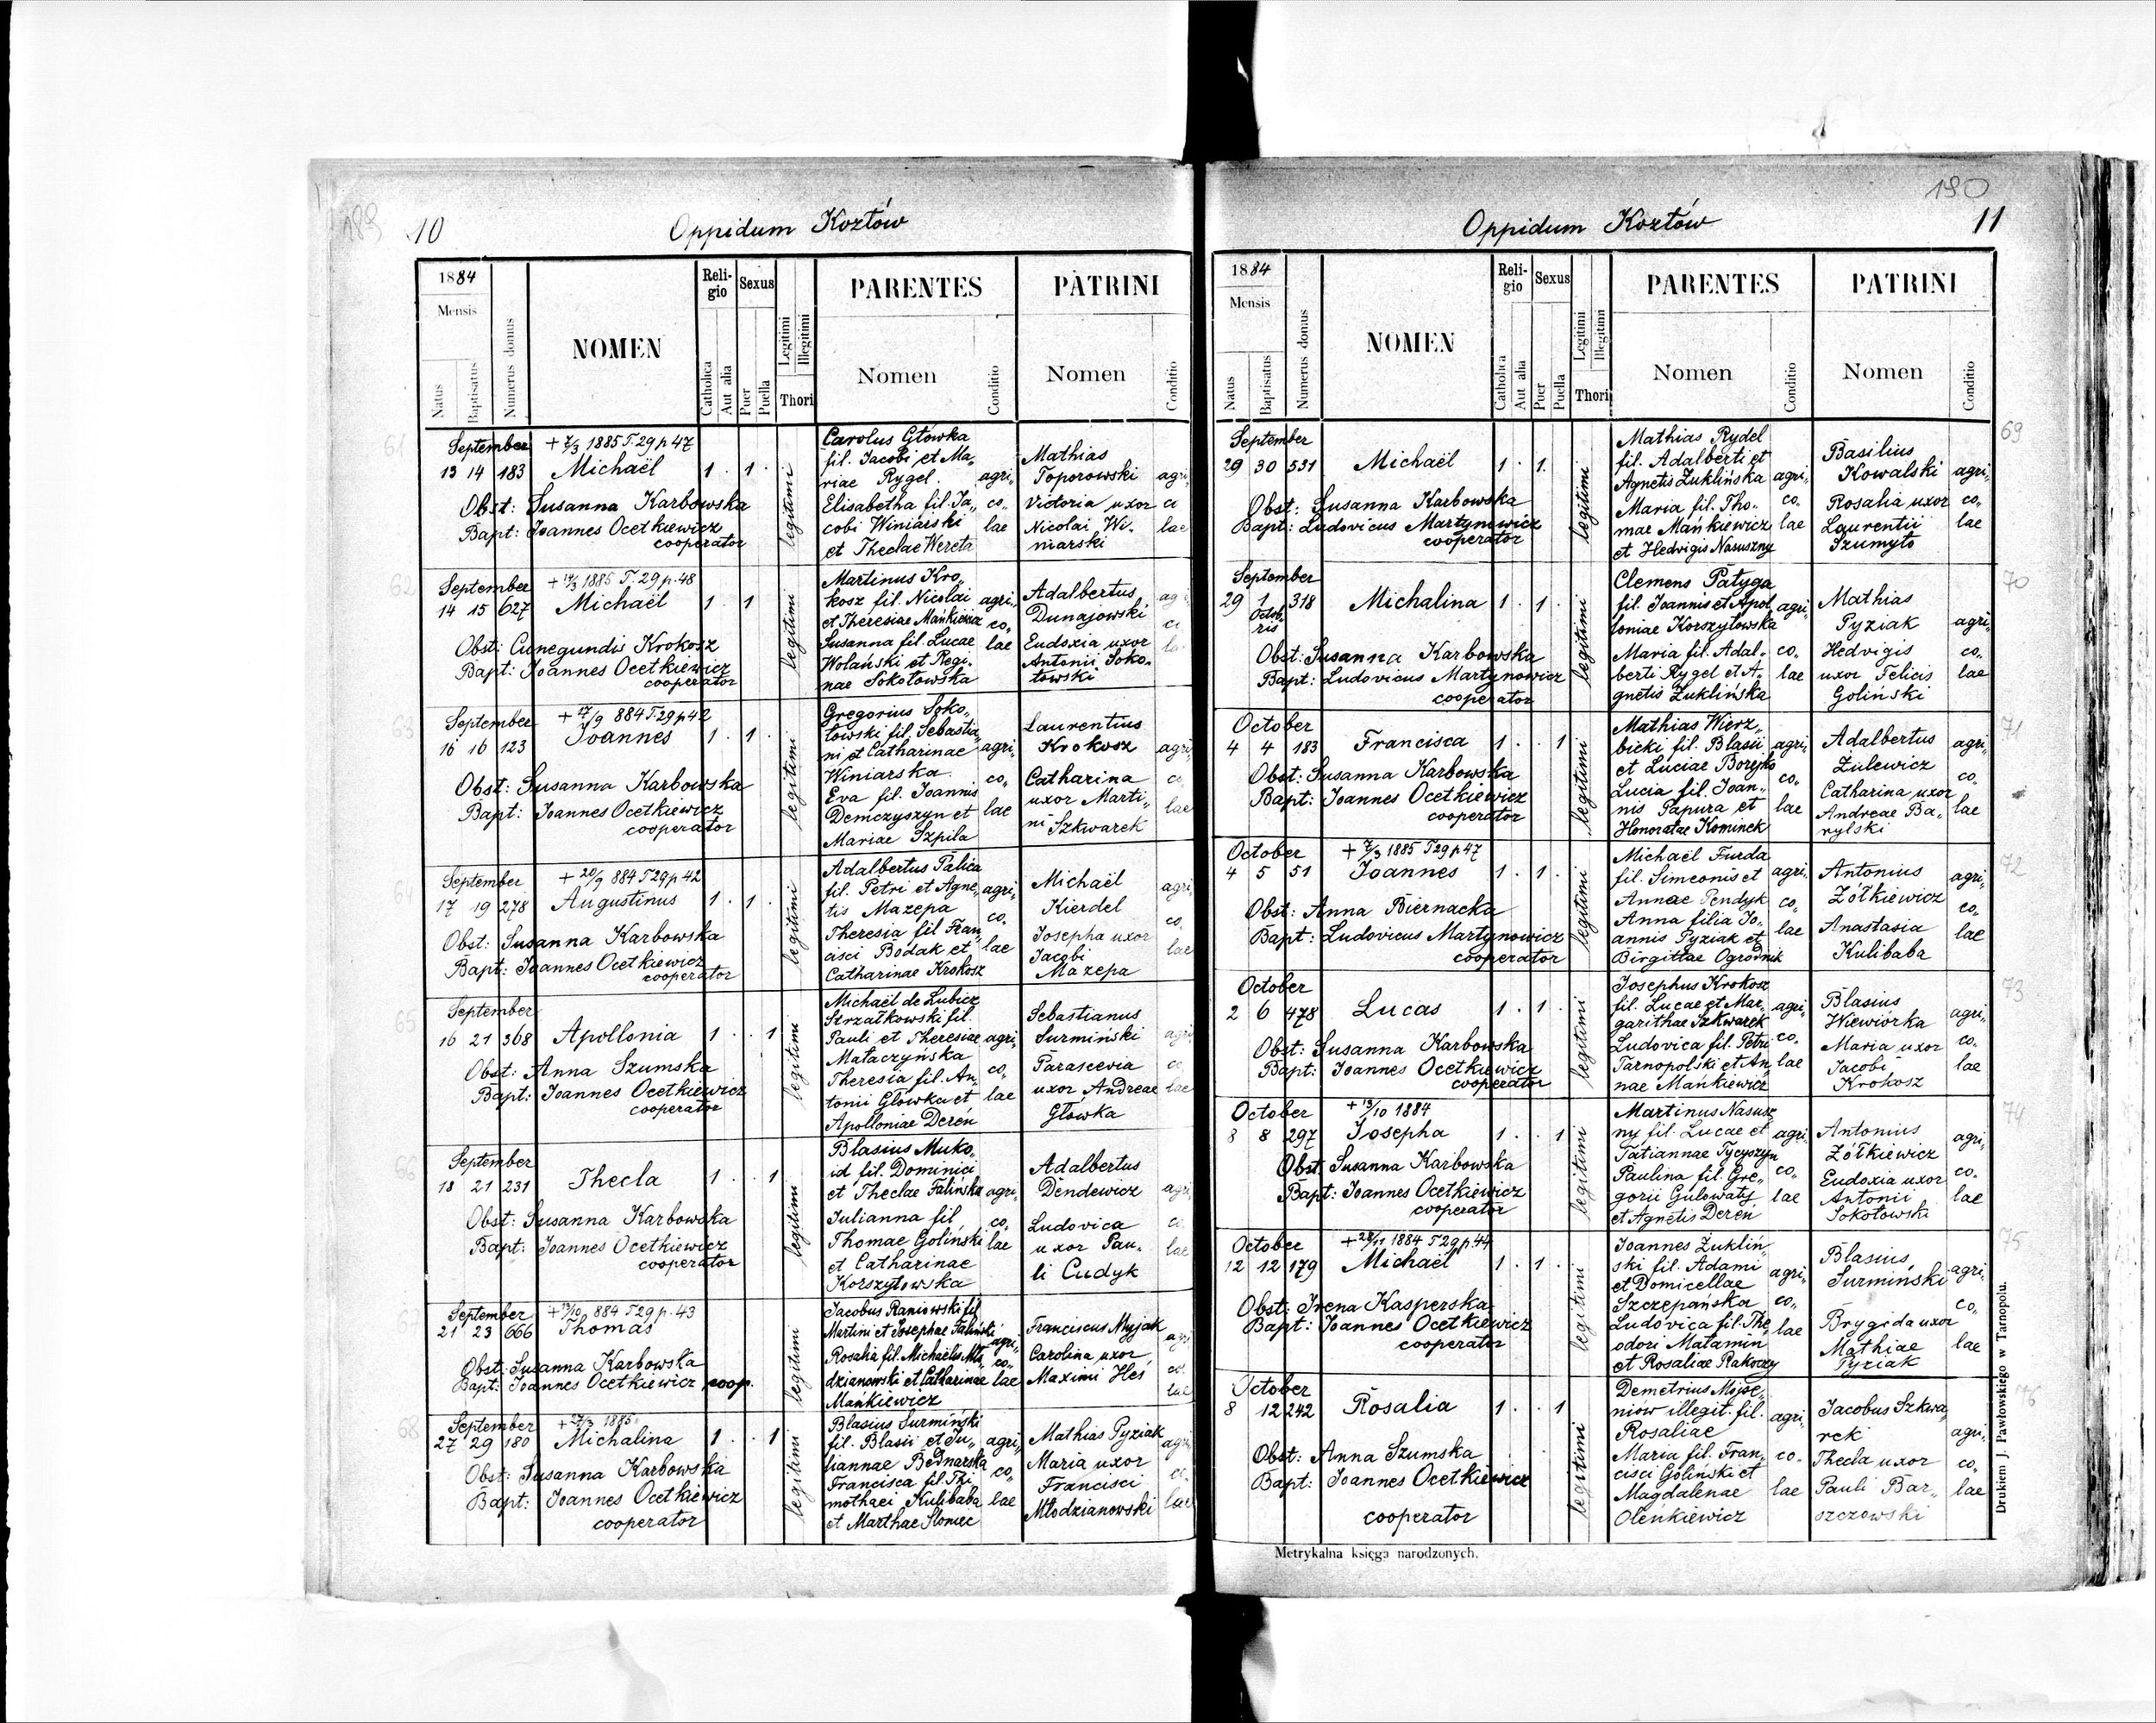 189
10
Oppidum Kozłów
1884
Mensis
Natus
Baptisatus
Numerus domus
NOMEN
Reli-
gio
Catholica
Aut alia
Sexus
Puer
Puella
Legitimi
Illegitimi
Thori
PARENTES
Nomen
Conditio
PATRINI
Nomen
Conditio
61
September + 7/3 1885 T. 29 p 47
13 14 183 Michaël 1 . 1 .
Obst: Susanna Karbowska
Bapt: Joannes Ocetkiewicz
cooperator
legitimi
Carolus Głowka
fil. Jacobi et Ma„
riae Rygel.
Elisabetha fil. Ja„
cobi Winiarski
et Theclae Wereta
agri„
co„
lae
Mathias
Toporowski
Victoria uxor
Nicolai Wi-
niarski
agri„
co
lae
62
September + 14/3 1885 T. 29 p. 48
14 15 627 Michaël 1 . 1
Obst: Cunegundis Krokosz
Bapt: Joannes Ocetkiewicz
cooperator
legitimi
Martinus Kro„
kosz fil. Nicolai
et Theresiae Mańkiewicz
Susanna fil. Lucae
Wolański et Regi-
nae Sokołowska
agri„
co„
lae
Adalbertus
Dunajowski
Eudoxia uxor
Antonii Soko-
łowski
63
September + 27/9 884 T. 29 p 42
16 16 123 Joannes 1 . 1 .
Obst: Susanna Karbowska
Bapt: Joannes Ocetkiewicz
cooperator
legitimi
Gregorius Soko„
łowski fil. Sebastia„
ni et Catharinae
Winiarska
Eva fil. Joannis
Demczyszyn et
Mariae Szpila
agri„
co„
lae
Laurentius
Krokosz
Catharina
uxor Marti„
ni Szkwarek
agri
co
lae
64
September + 20/9 884 T 29 p 42
17 19 278 Augustinus 1 . 1 .
Obst: Susanna Karbowska
Bapt: Joannes Ocetkiewicz
cooperator
legitimi
Adalbertus Palica
fil. Petri et Agne„
tis Mazepa
Theresia fil Fran„
cisci Bodak et
Catharinae Krokosz
agri„
co„
lae
Michaël
Kierdel
Josepha uxor
Jacobi
Mazepa
agri
co
lae
65
September
16 21 368 Apollonia 1 . . 1
Obst: Anna Szumska
Bapt: Joannes Ocetkiewicz
cooperator
legitimi
Michaël de Lubicz
Strzałkowski fil.
Pauli et Theresiae
Mataczyńska
Theresia fil. An„
tonii Głowka et
Apolloniae Dereń
agri„
co„
lae
Sebastianus
Surmiński
Parascevia
uxor Andreae
Głowka
agri
co
lae
66
September
18 21 231 Thecla 1 . . 1
Obst: Susanna Karbowska
Bapt: Joannes Ocetkiewicz
cooperator
legitimi
Blasius Muko„
id fil. Dominici
et Theclae Falińska
Julianna fil.
Thomae Goliński
et Catharinae
Korszytowska
agri„
co„
lae
Adalbertus
Dendewicz
Ludovica
uxor Pau„
li Cudyk
agri
co
lae
67
September + 13/10 884 T 29 p. 43
21 23 666 Thomas
Obst: Susanna Karbowska
Bapt: Joannes Ocetkiewicz coop.
legitimi
Jacobus Raniowski fil
Martini et Josephae Faliński
Rosalia fil. Michaëlis Mło„
dzianowski et Catharinae
Mańkiewicz
agri„
co„
lae
Franciscus
Carolina uxor
Maximi
agri
co
lae
68
September + 27/3 1885
27 29 180 Michalina 1 . . 1
Obst: Susanna Karbowska
Bapt: Joannes Ocetkiewicz
cooperator
legitimi
Blasius Surmiński
fil. Blasii et Ju„
liannae Bednarska
Francisca fil. Thi
mothaei Kulibaba
et Marthae Słomiec
agri„
co„
lae
Mathias Pyziak
Maria uxor
Francisci
Młodzianowski
agri
co
lae
190
11
Oppidum Kozłów
1884
Mensis
Natus
Baptisatus
Numerus domus
NOMEN
Reli-
gio
Catholica
Aut alia
Sexus
Puer
Puella
Legitimi
Illegitimi
Thori
PARENTES
Nomen
Conditio
PATRINI
Nomen
Conditio
69
September
29 30 531 Michaël 1 . 1.
Obst: Susanna Karbowska
Bapt: Ludovicus Martynowicz
cooperator
legitimi
Mathias Rydel
fil. Adalberti et
Agnetis Żuklińska
Maria fil. Tho-
mae Mańkiewicz
et Hedvigis Nasuszny
agri„
co.
lae
Basilius
Kowalski
Rosalia uxor
Laurentii
Szumyło
agri„
co„
lae
70
September
29 1 318 Michalina 1 . 1 .
Octob-
ris
Obst: Susanna Karbowska
Bapt: Ludovicus Martynowicz
cooperator
legitimi
Clemens Patyga
fil. Joannis et Apol
loniae Korszytowska
Maria fil. Adal-
berti Rygel et A-
gnetis Żuklińska
agri„
co„
lae
Mathias
Pyziak
Hedvigis
uxor Felicis
Goliński
agri„
co„
lae
71
October
4 4 183 Francisca 1 . . 1
Obst: Susanna Karbowska
Bapt: Joannes Ocetkiewicz
cooperator
legitimi
Mathias Wierz„
bicki fil. Blasii
et Luciae Borejko
Lucia fil. Joan„
nis Papura et
Honoratae Kominek
agri„
co„
lae
Adalbertus
Żulewicz
Catharina uxor
Andreae Ba„
rylski
agri„
co„
lae
72
October + 7/3 1885 T 29 p 47
4 5 51 Joannes 1 . 1 .
Obst: Anna Biernacka
Bapt: Ludovicus Martynowicz
cooperator
legitimi
Michaël Furda
fil. Simeonis et
Annae Pendyk
Anna filia Jo„
annis Pyziak et
Birgittae Ogrodnik
agri„
co„
lae
Antonius
Żółkiewicz
Anastasia
Kulibaba
agri„
co„
lae
73
October
2 6 478 Lucas 1 . 1 .
Obst: Susanna Karbowska
Bapt: Joannes Ocetkiewicz
cooperator
legitimi
Josephus Krokosz
fil. Lucae et Mar„
garithae Szkwarek
Ludovica fil. Petri
Tarnopolski et An„
nae Mańkiewicz
agri„
co„
lae
Blasius
Wiewiórka
Maria uxor
Jacobi
Krokosz
agri„
co„
lae
74
October + 13/10 1884
8 8 297 Josepha 1 . . 1
Obst: Susanna Karbowska
Bapt: Joannes Ocetkiewicz
cooperator
legitimi
Martinus Nasusz
ny fil. Lucae et
Tatiannae Tycyszyn
Paulina fil. Gre„
gorii Gulowaty
et Agnetis Dereń
agri„
co„
lae
Antonius
Żółkiewicz
Eudoxia uxor
Antonii
Sokołowski
agri„
co„
lae
75
October + 28/11 1884 T 29 p. 44
12 12 179 Michaël 1 . 1 .
Obst: Irena Kasperska
Bapt: Joannes Ocetkiewicz
cooperator
legitimi
Joannes Żuklin„
ski fil. Adami
et Domicellae
Szczepańska
Ludovica fil. The„
odori Matamin
et Rosaliae Rakoczy
agri„
co„
lae
Blasius
Surmiński
Brygida uxor
Mathiae
Pyziak
agri„
co„
lae
76
October
8 12 242 Rosalia 1 . . 1
Obst: Anna Szumska
Bapt: Joannes Ocetkiewicz
cooperator
legitimi
Demetrius Mojse„
niow illegit. fil.
Rosaliae
Maria fil. Fran„
cisci Goliński et
Magdalenae
Olenkiewicz
agri„
co„
lae
Jacobus Szkwa
rek
Thecla uxor
Pauli Bar„
szczowski
agri„
co„
lae
Metrykalna księga narodzonych.
Drukiem J. Pawłowskiego w Tarnopolu.